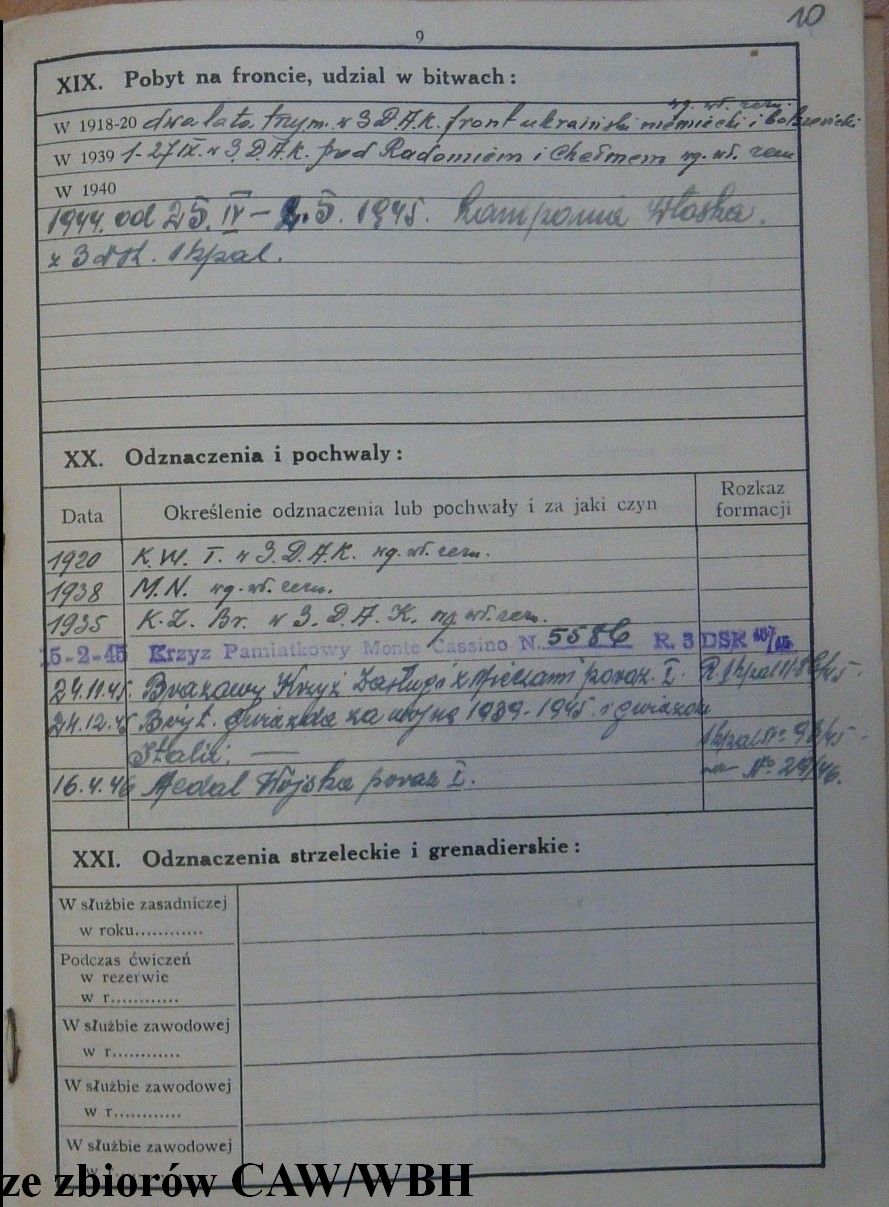 10
9
XIX. Pobyt na froncie, udzial w bitwach:
wg. wł. zezn.
W 1918-20 dwa lata w 3 D.A.K. front ukraiński niemiecki i bolszewicki
W 1939 1-27 IX. w 3. D.A.K. pod Radomiem i Chełmem wg. wł. zezn
W 1940
1944. od 25. IV – 2.5. 1945. Kampania Włoska.
z 3 DSK. 1 kpal.
XX. Odznaczenia i pochwaly:
Data
Określenie odznaczenia lub pochwały i za jaki czyn
Rozkaz formacji
1920 K.W. I. w 3. D.A.K. wg. wł. zezn.
1938 M.N. wg. wł. zezn.
1935 K.Z. Br. w 3. D.A.K. wg wł. zezn.
15-2-45 Krzyz Pamiatkowy Monte Cassino N. 5586 R. 3 DSK 407/45
24.11.45. Brązowy Krzyż Zasługi z Mieczami poraz I. R. 1 kpal
24.12.45 Bryt. Gwiazda za wojnę 1939-1945. i gwiazda
Italii; — 1 kpal No 93/45
16.4.46 Medal Wojska poraz I. No 29/46.
XXI. Odznaczenia strzeleckie i grenadierskie:
W służbie zasadniczej
w roku............
Podczas ćwiczeń
w rezerwie
w r............
W służbie zawodowej
w r............
W służbie zawodowej
w r............
W służbie zawodowej
ze zbiorów CAW/WBH